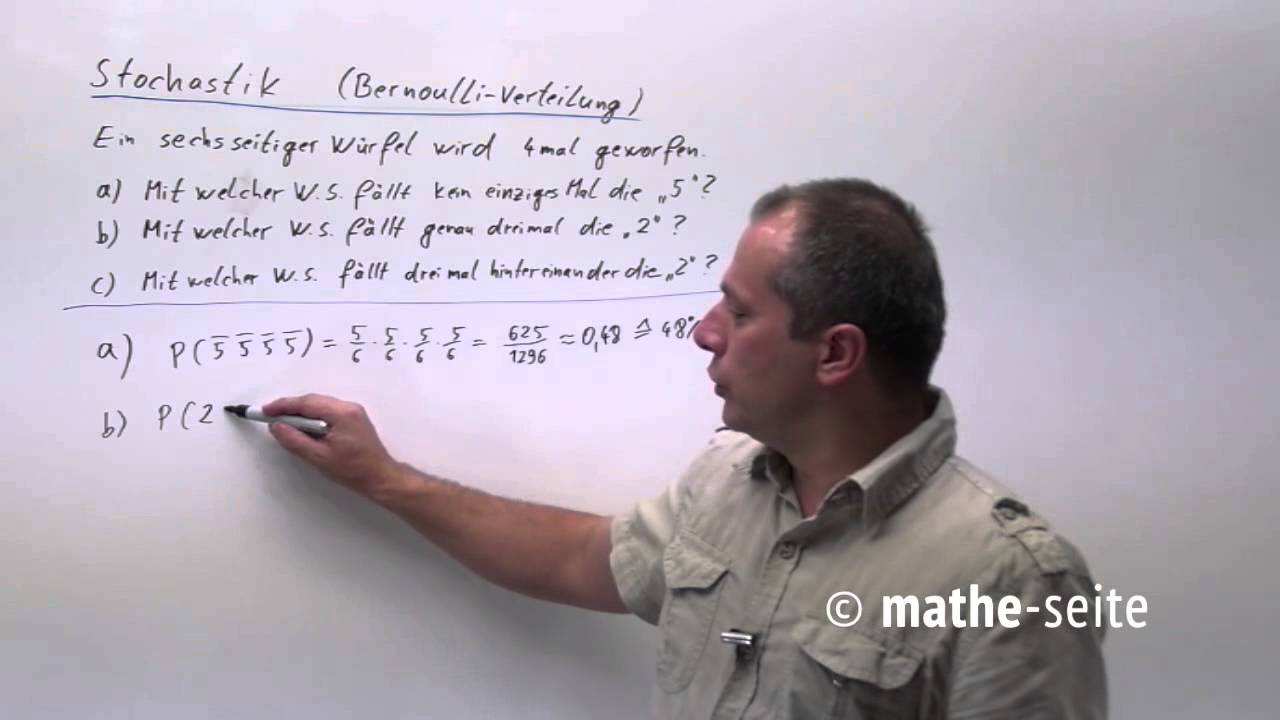 Stochastik (Bernoulli-Verteilung)
Ein sechsseitiger Würfel wird 4mal geworfen.
a) Mit welcher W.S. fällt kein einziges Mal die „5"?
b) Mit welcher W.S. fällt genau dreimal die „2"?
c) Mit welcher W.S. fällt dreimal hintereinander die „2"?
a) P(5̅ 5̅ 5̅ 5̅) = 5/6 · 5/6 · 5/6 · 5/6 = 625/1296 ≈ 0,48 ≙ 48%
b) P(2
© mathe-seite